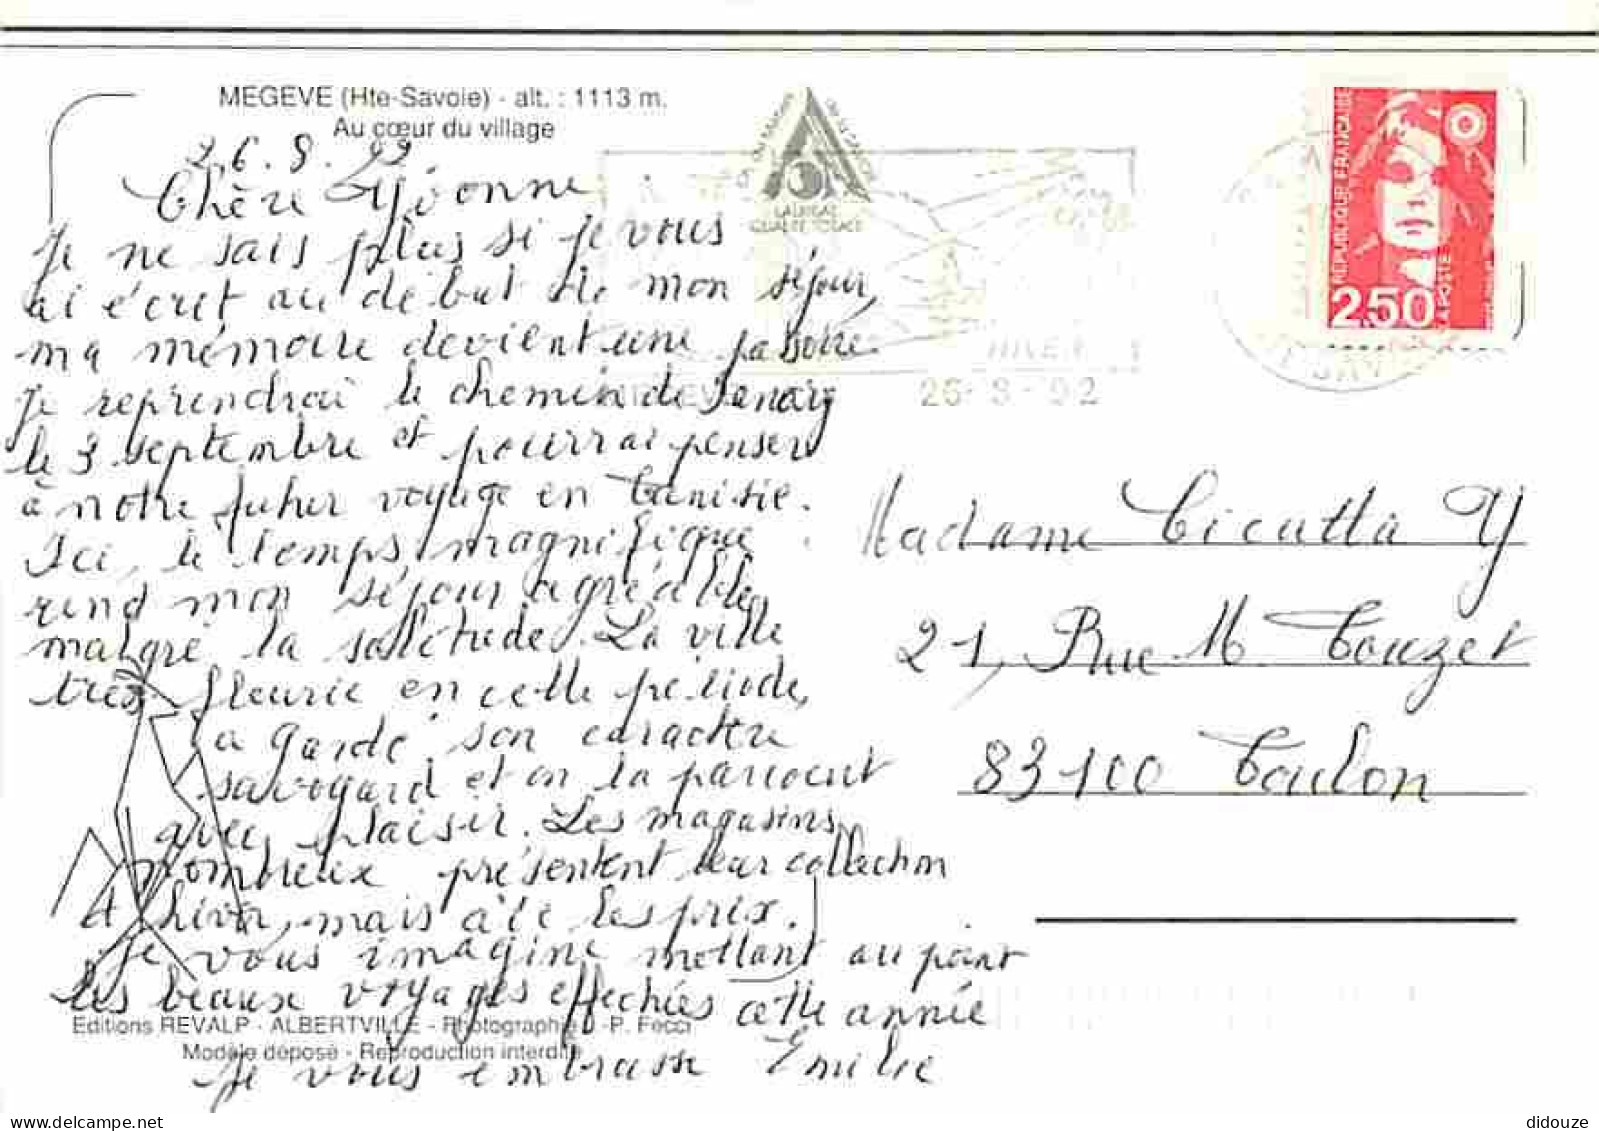 MEGEVE (Hte-Savoie) - alt. : 1113 m.
Au cœur du village
26.8.92
Chère Yvonne
Je ne sais plus si je vous
ai écrit au début de mon séjour,
ma mémoire devient une passoire.
Je reprendrai le chemin de
le 3 septembre et pourrai penser
à notre futur voyage en Tunisie.
Ici, le temps magnifique
rend mon séjour agréable
malgré la solitude. La ville
très fleurie en cette période,
a gardé son caractère
savoyard et on la parcourt
avec plaisir. Les magasins
nombreux présentent leur collection
d'hiver, mais aïe les prix.
Je vous imagine mettant au point
les beaux voyages effectués cette année
Je vous embrasse Emilie
Editions REVALP - ALBERTVILLE - Photographie J.-P. Fecci
Modèle déposé - Reproduction interdite
LAUREAT
QUALITE TOTALE
MEGEVE
26-8-92
REPUBLIQUE FRANÇAISE
2,50
LA POSTE
Madame Cicutta Y
21, Rue M. Touzet
83100 Toulon
didouze